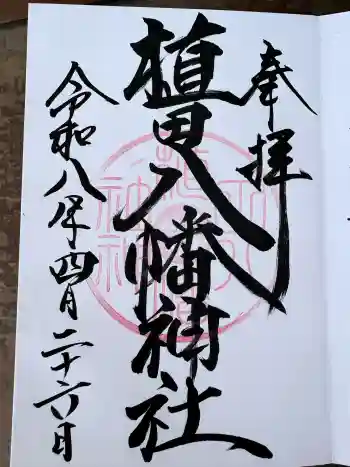 奉拝
植田八幡神社
令和八年四月二十六日